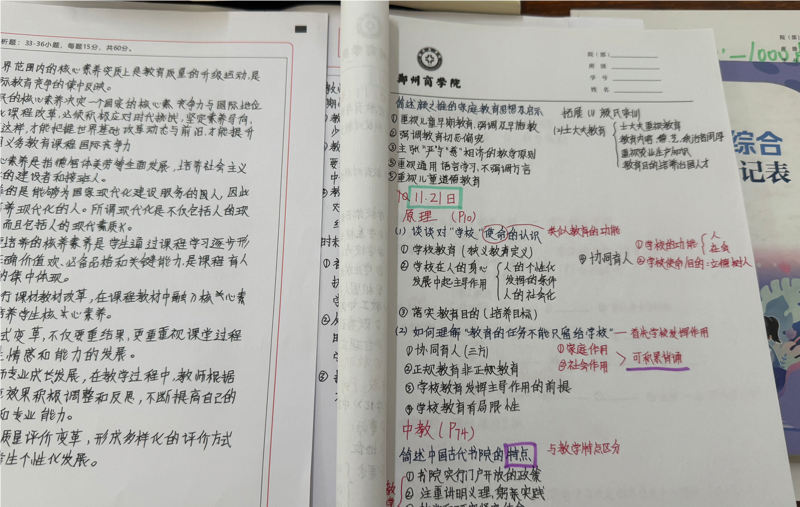 析题：33-36小题，每题15分，共60分。
界范围内的核心素养实质上是教育质量的升级运动，是
际教育竞争的集中反映。
民的核心素养决定一个国家的核心竞争力与国际地位
化课程改革，必须积极应对时代挑战，坚定素养导向，
这样，才能把握世界基础改革动态与前沿，才能提升
义务教育课程国际竞争力
心素养是指德智体美劳等全面发展，培养社会主义
的建设者和接班人。
养的是能够为国家现代化建设服务的国人，因此
养现代化的人。所谓现代化是不仅包括人的现
而且包括人的现代素质K。
是培养的核养素养是学生通过课程学习逐步形
正确价值观、必备品格和关键能力，是课程育人
的集中体现。
行课材教材改革，在课程教材中融入核心素
培养学生核心素养。
式变革，不仅要重结果，更重重视课堂过程
生情感和能力的发展。
师专业成长发展，在教学过程中，教师根据
效果积极调整和反思，不断提高自己的
和专业能力。
质量评价变革，形成多样化的评价方式
学生个性化发展。
郑州商学院
院（部）
班级
学号
姓名
简述颜之推的家庭教育思想及启示
①重视儿童早期教育，强调及早施教
②强调教育切忌偏宠
③主张"严"与"慈"相济的教学原则
④重视通用语言学习，不强调方言
⑤重视儿童道德教育
拓展 颜氏家训
(1)士大夫教育
士大夫重视教育
重视农业生产知识
11.21日
原理（P10）
(1) 谈谈对"学校"使命的认识
类似教育的功能
①学校教育（狭义教育定义）
②学校在人的身心发展中起主导作用
人的个性化
发挥的条件
人的社会化
③落实教育目的（培养目标）
④协同育人
①学校的功能
人
社会
②学校使命/目的:立德树人
(2) 如何理解"教育的任务不能只留给学校"
—首先学校发挥作用
①协同育人（三方）
②正规教育非正规教育
③学校教育发挥主导作用的前提
④学校教育有局限性
①家庭作用
②社会作用
可积累背诵
中教（P74）
简述中国古代书院的特点
与教学特点区分
①书院实行门户开放的政策
②注重讲明义理，躬亲实践
综合
记表